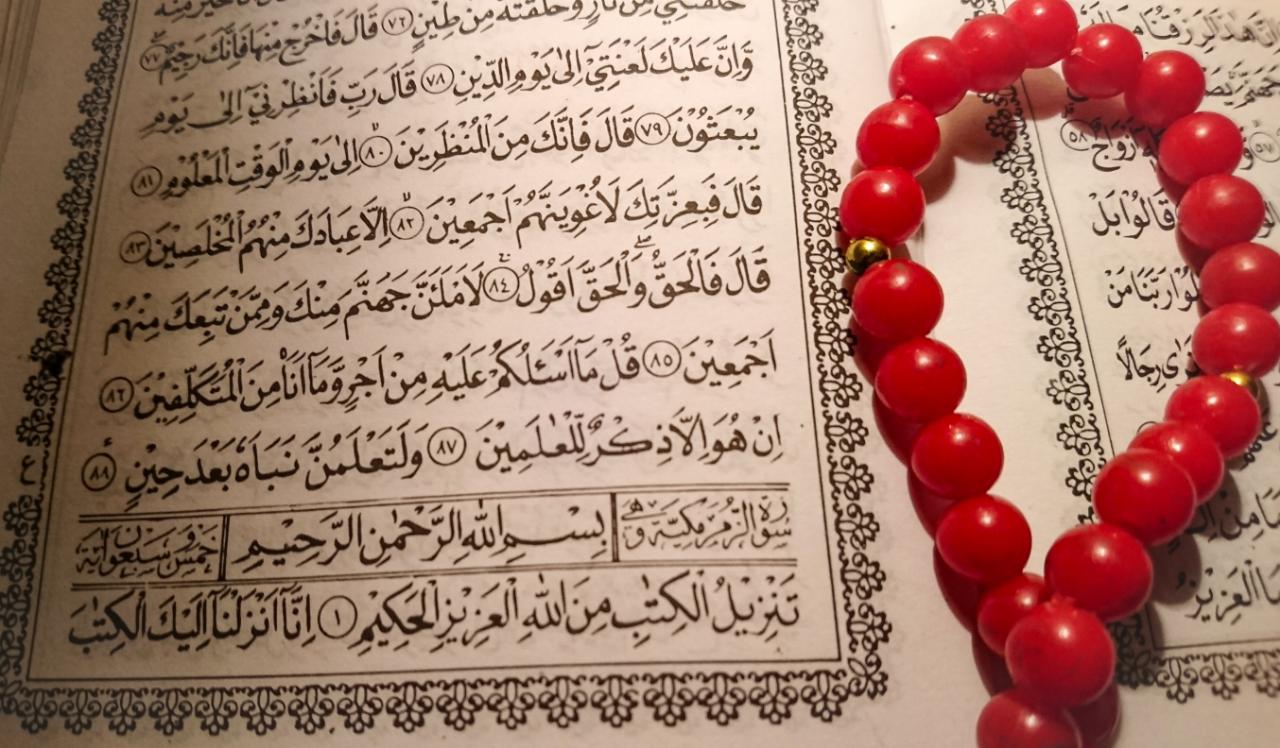 خَلَقْتَنِيْ مِنْ نَارٍ وَخَلَقْتَهُ مِنْ طِيْنٍ ﴿٧٦﴾ قَالَ فَاخْرُجْ مِنْهَا فَاِنَّكَ رَجِيْمٌ ﴿٧٧﴾
وَّاِنَّ عَلَيْكَ لَعْنَتِيْٓ اِلٰى يَوْمِ الدِّيْنِ ﴿٧٨﴾ قَالَ رَبِّ فَاَنْظِرْنِيْٓ اِلٰى يَوْمِ
يُبْعَثُوْنَ ﴿٧٩﴾ قَالَ فَاِنَّكَ مِنَ الْمُنْظَرِيْنَ ﴿٨٠﴾ اِلٰى يَوْمِ الْوَقْتِ الْمَعْلُوْمِ ﴿٨١﴾
قَالَ فَبِعِزَّتِكَ لَاُغْوِيَنَّهُمْ اَجْمَعِيْنَ ﴿٨٢﴾ اِلَّا عِبَادَكَ مِنْهُمُ الْمُخْلَصِيْنَ ﴿٨٣﴾
قَالَ فَالْحَقُّ وَالْحَقَّ اَقُوْلُ ﴿٨٤﴾ لَاَمْلَئَنَّ جَهَنَّمَ مِنْكَ وَمِمَّنْ تَبِعَكَ مِنْهُمْ
اَجْمَعِيْنَ ﴿٨٥﴾ قُلْ مَآ اَسْئَلُكُمْ عَلَيْهِ مِنْ اَجْرٍ وَّمَآ اَنَا۠ مِنَ الْمُتَكَلِّفِيْنَ ﴿٨٦﴾
اِنْ هُوَ اِلَّا ذِكْرٌ لِّلْعٰلَمِيْنَ ﴿٨٧﴾ وَلَتَعْلَمُنَّ نَبَاَهٗ بَعْدَ حِيْنٍ ﴿٨٨﴾
سورة الزمر مكية وهي بِسْمِ اللهِ الرَّحْمٰنِ الرَّحِيْمِ خمس وسبعون آية
تَنْزِيْلُ الْكِتٰبِ مِنَ اللهِ الْعَزِيْزِ الْحَكِيْمِ ﴿١﴾ اِنَّآ اَنْزَلْنَآ اِلَيْكَ الْكِتٰبَ
اِنَّ هٰذَا لَرِزْقُنَا
اَزْوَاجٌ ﴿٥٨﴾
قَالُوْا بَلْ
رَبَّنَا مَنْ
رِجَالًا
الْعَزِيْزُ